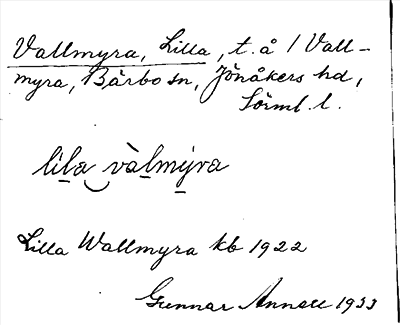 Vallmyra, Lilla, t. å 1 Vall-
myra, Bärbo sn, Jönåkers hd,
Sörml. l.
lila vàlmýra
Lilla Wallmyra kb 1922
Gunnar Annell 1933